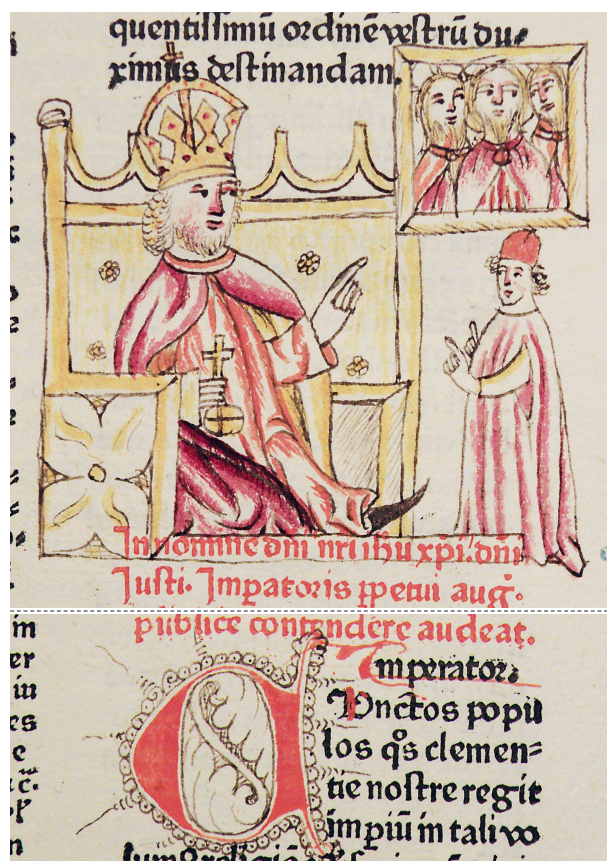 quentissimū ordinē vestrū du-
ximus destinandam.
In nomine dn̄i nr̄i ihū xp̄i. dn̄i
Justi. Imꝑatoris ꝑpetui aug̃.
publice contendere audeat.
in
Imꝑator.
er
Cunctos popu
iu
los q̊s clemen⸗
es
tie nostre regit
e
imꝑiū in tali vo